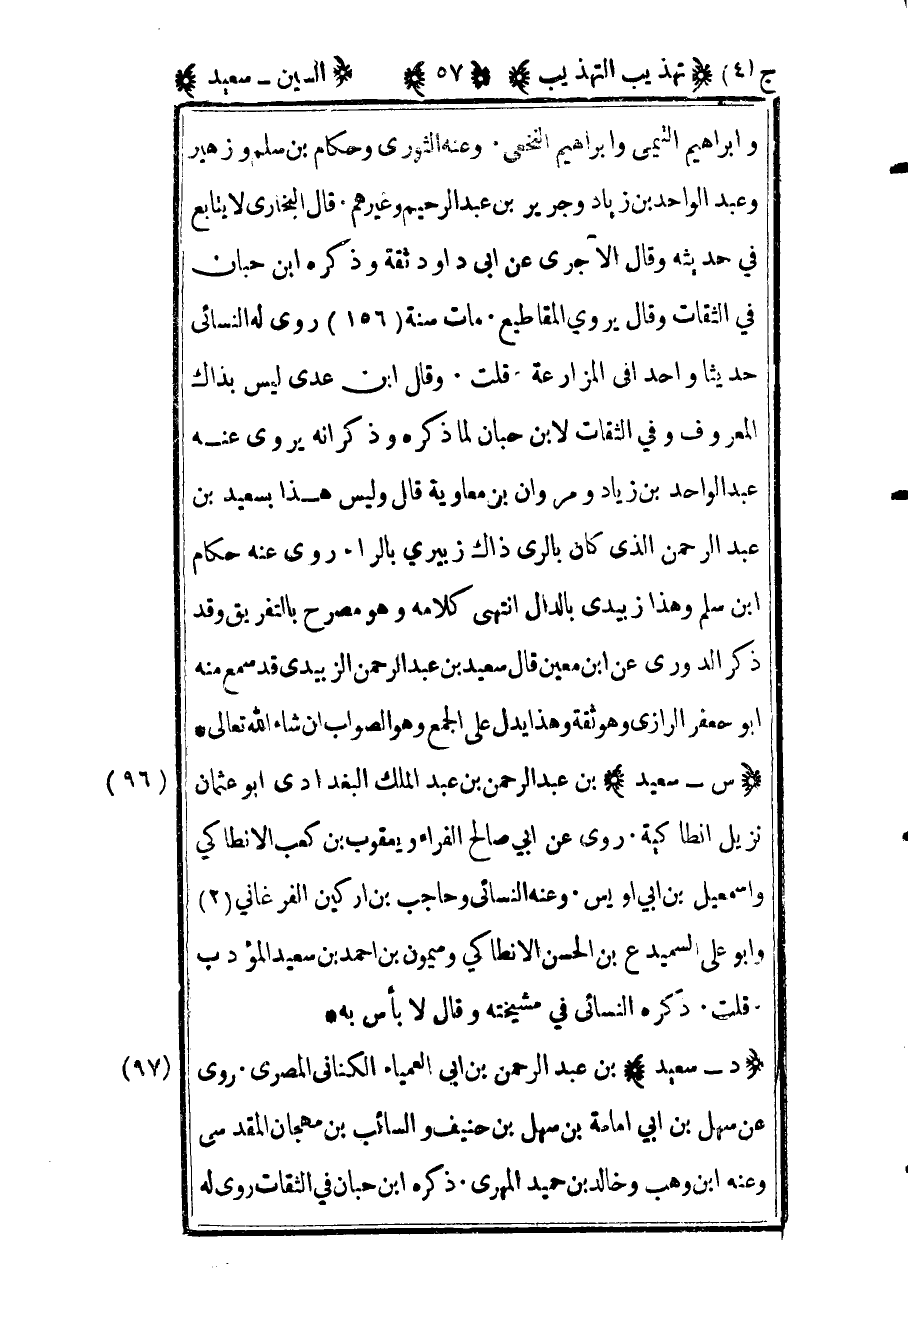 ج (٤) ﴿ تهذيب التهذيب ﴾ ﴿ ٥٧ ﴾ ﴿ السين ـ سعيد ﴾
و ابراهيم التيمى وابراهيم النخعى · وعنه الثورى وحكام بن سلم و زهير
وعبد الواحد بن زياد وجرير بن عبد الرحيم وغيرهم · قال البخارى لا يتابع
في حديثه وقال الآجرى عن ابى داود ثقة وذكره ابن حبان
في الثقات وقال يروي المقاطيع · مات سنة (١٥٦) روى له النسائى
حديثا واحدا فى المزارعة · قلت · وقال ابن عدى ليس بذاك
المعروف وفي الثقات لابن حبان لما ذكره وذكر انه يروى عنه
عبدالواحد بن زياد ومروان بن معاوية قال وليس هـذا بسعيد بن
عبد الرحمن الذى كان بالرى ذاك زبيري بالرا · روى عنه حكام
ابن سلم وهذا زبيدى بالدال انتهى كلامه وهو مصرح باالتفريق وقد
ذكر الدورى عن ابن معين قال سعيد بن عبد الرحمن الزبيدى قد سمع منه
ابو جعفر الرازى وهو ثقة وهذا يدل على الجمع وهو الصواب ان شاء الله تعالى*
﴿ س ـ سعيد ﴾ بن عبدالرحمن بن عبد الملك البغدادى ابو عثمان (٩٦)
نزيل انطاكية · روى عن ابي صالح الفراء ويعقوب بن كعب الانطاكي
واسمعيل بن ابي اويس · وعنه النسائى وحاجب بن اركين الفرغاني (٢)
وابو على السميدع بن الحسن الانطاكي وميمون بن احمد بن سعيد المؤدب
· قلت · ذكره النسائى في مشيخته وقال لا بأس به*
﴿ د ـ سعيد ﴾ بن عبد الرحمن بن ابى العمياء الكنانى المصرى · روى (٩٧)
عن سهل بن ابي امامة بن سهل بن حنيف و السائب بن مهجان المقدسى
وعنه ابن وهب وخالد بن حميد المهرى · ذكره ابن حبان في الثقات روى له